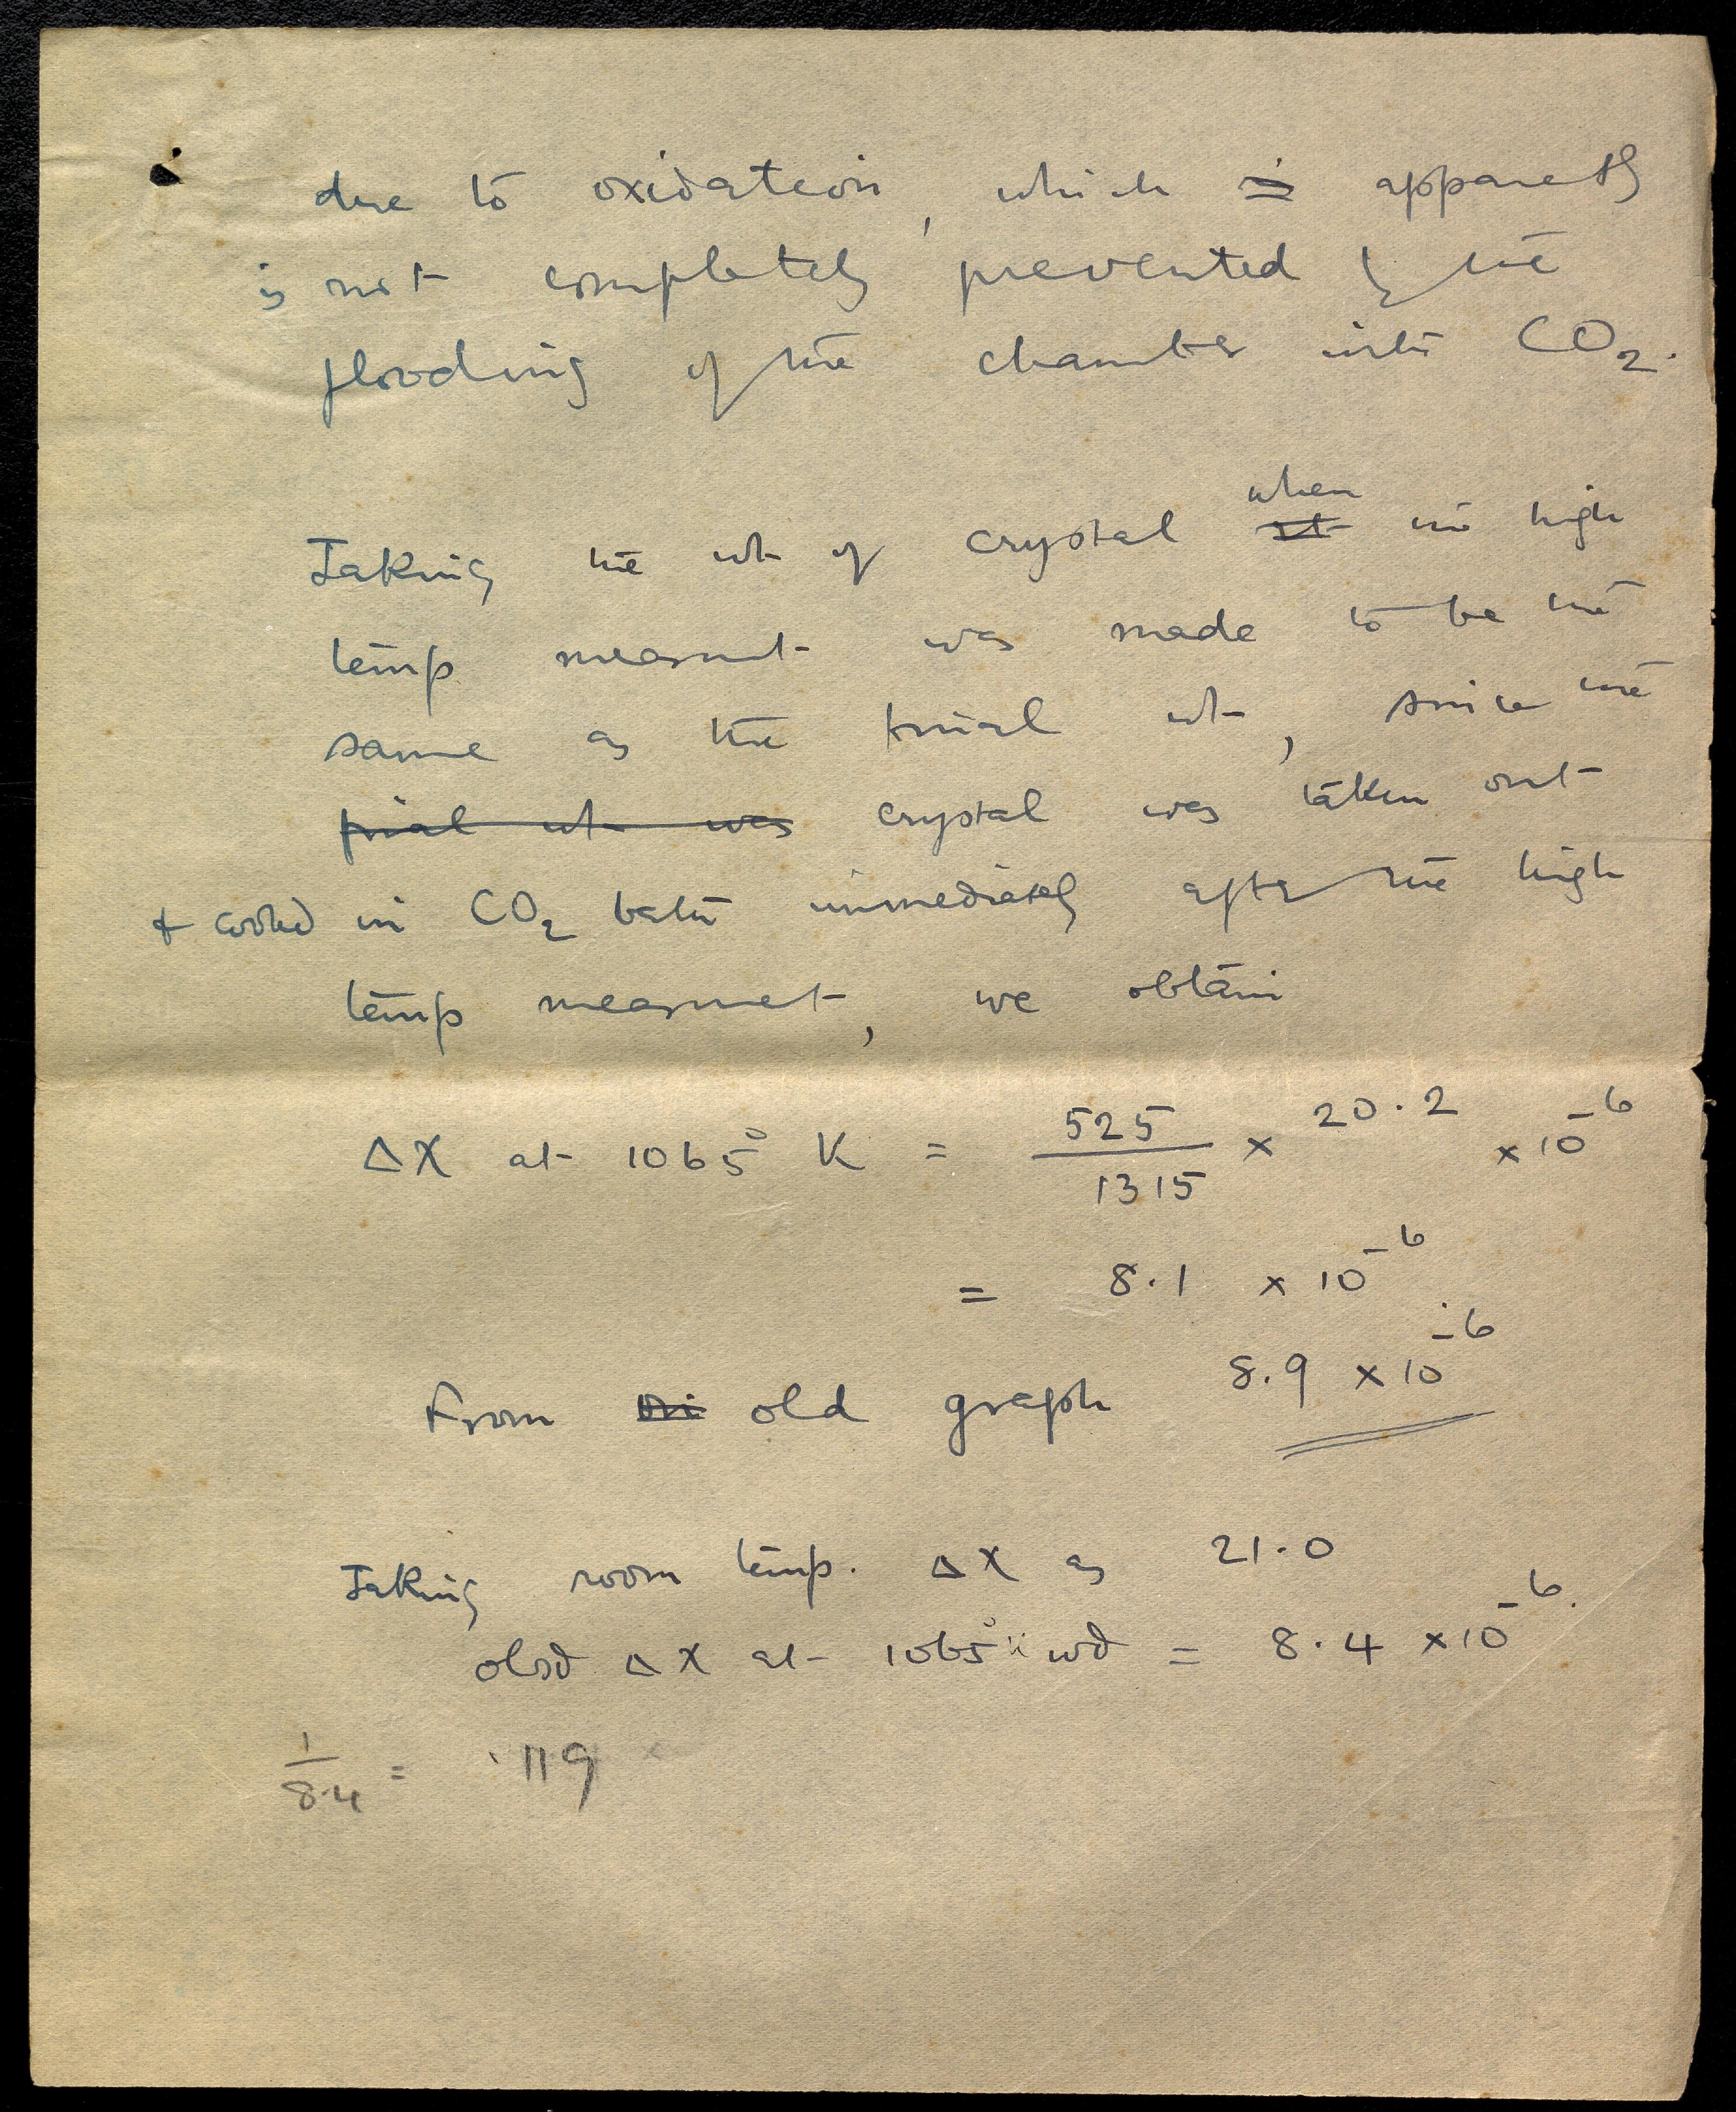 due to oxidation, which is apparently
is not completely prevented by the
flooding of the chamber with CO2.
when
Taking the wt of crystal at the high
temp measmt was made to be the
same as the final wt, since the
final wt was crystal was taken out
& cooled in CO2 bath immediately after the high
temp measmet, we obtain
ΔX at 1065° K = 525/1315 × 20.2 × 10^-6
= 8.1 × 10^-6
From on old graph 8.9 × 10^-6
Taking room temp. ΔX as 21.0
obsd ΔX at 1065° wd = 8.4 × 10^-6.
1/8.4 = .119